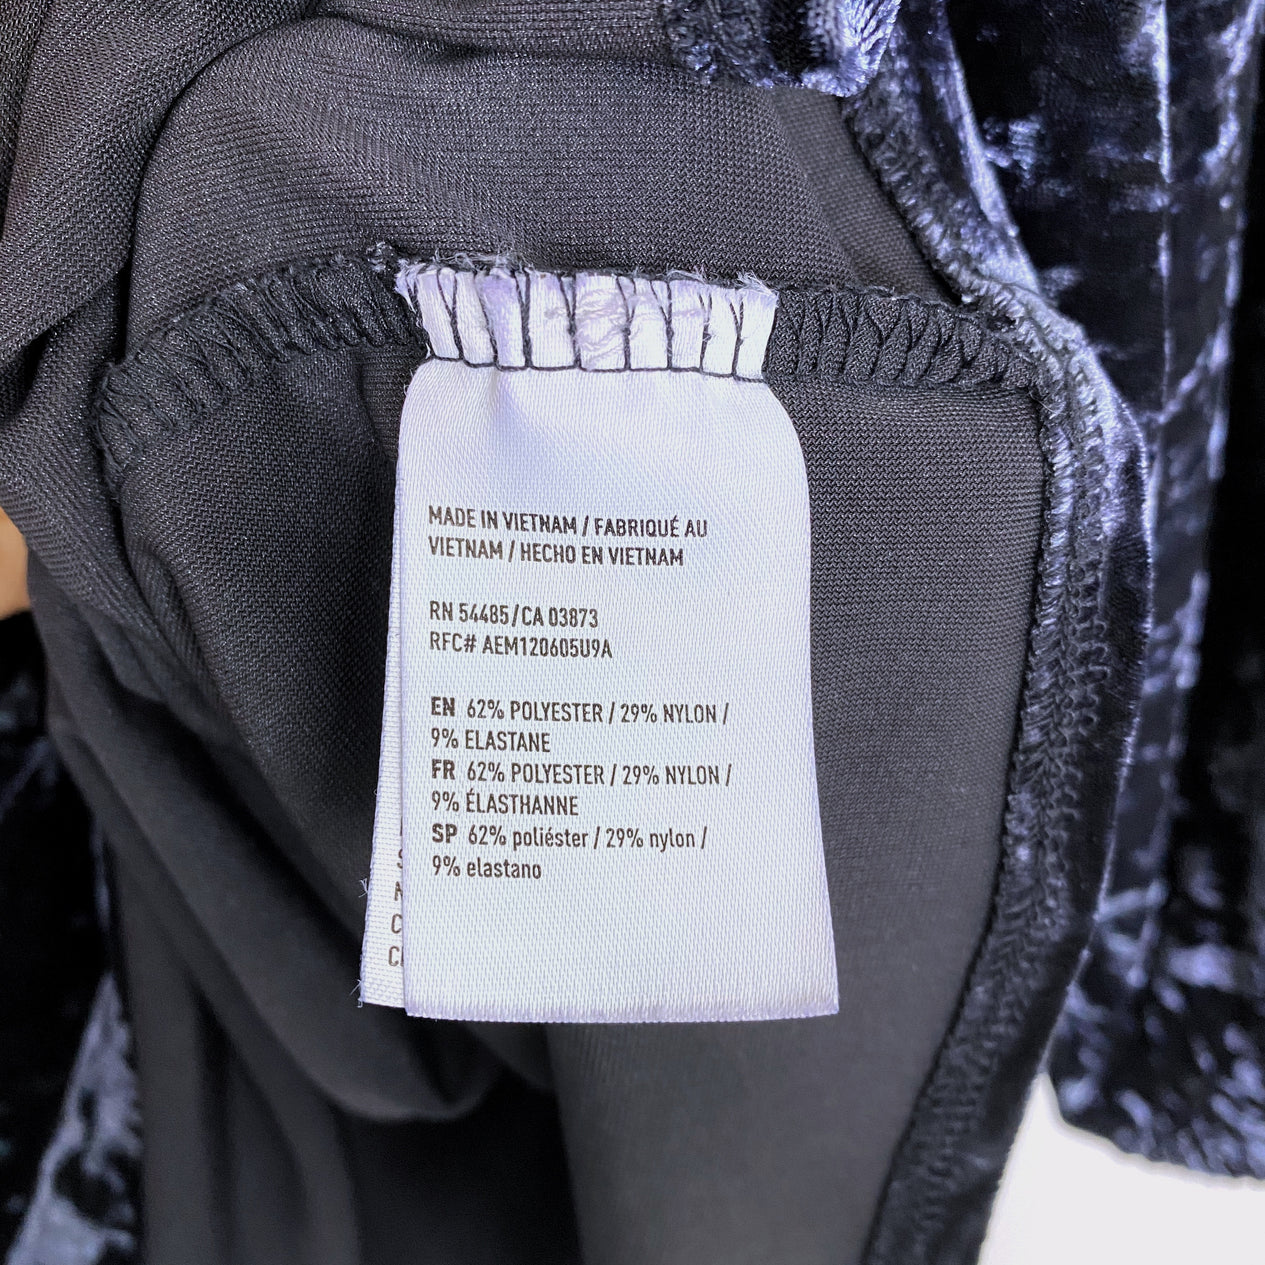 MADE IN VIETNAM / FABRIQUÉ AU
VIETNAM / HECHO EN VIETNAM
RN 54485/CA 03873
RFC# AEM120605U9A
EN 62% POLYESTER / 29% NYLON /
9% ELASTANE
FR 62% POLYESTER / 29% NYLON /
9% ÉLASTHANNE
SP 62% poliéster / 29% nylon /
9% elastano